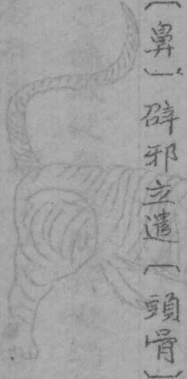 〔鼻〕辟邪立遣〔頭骨〕